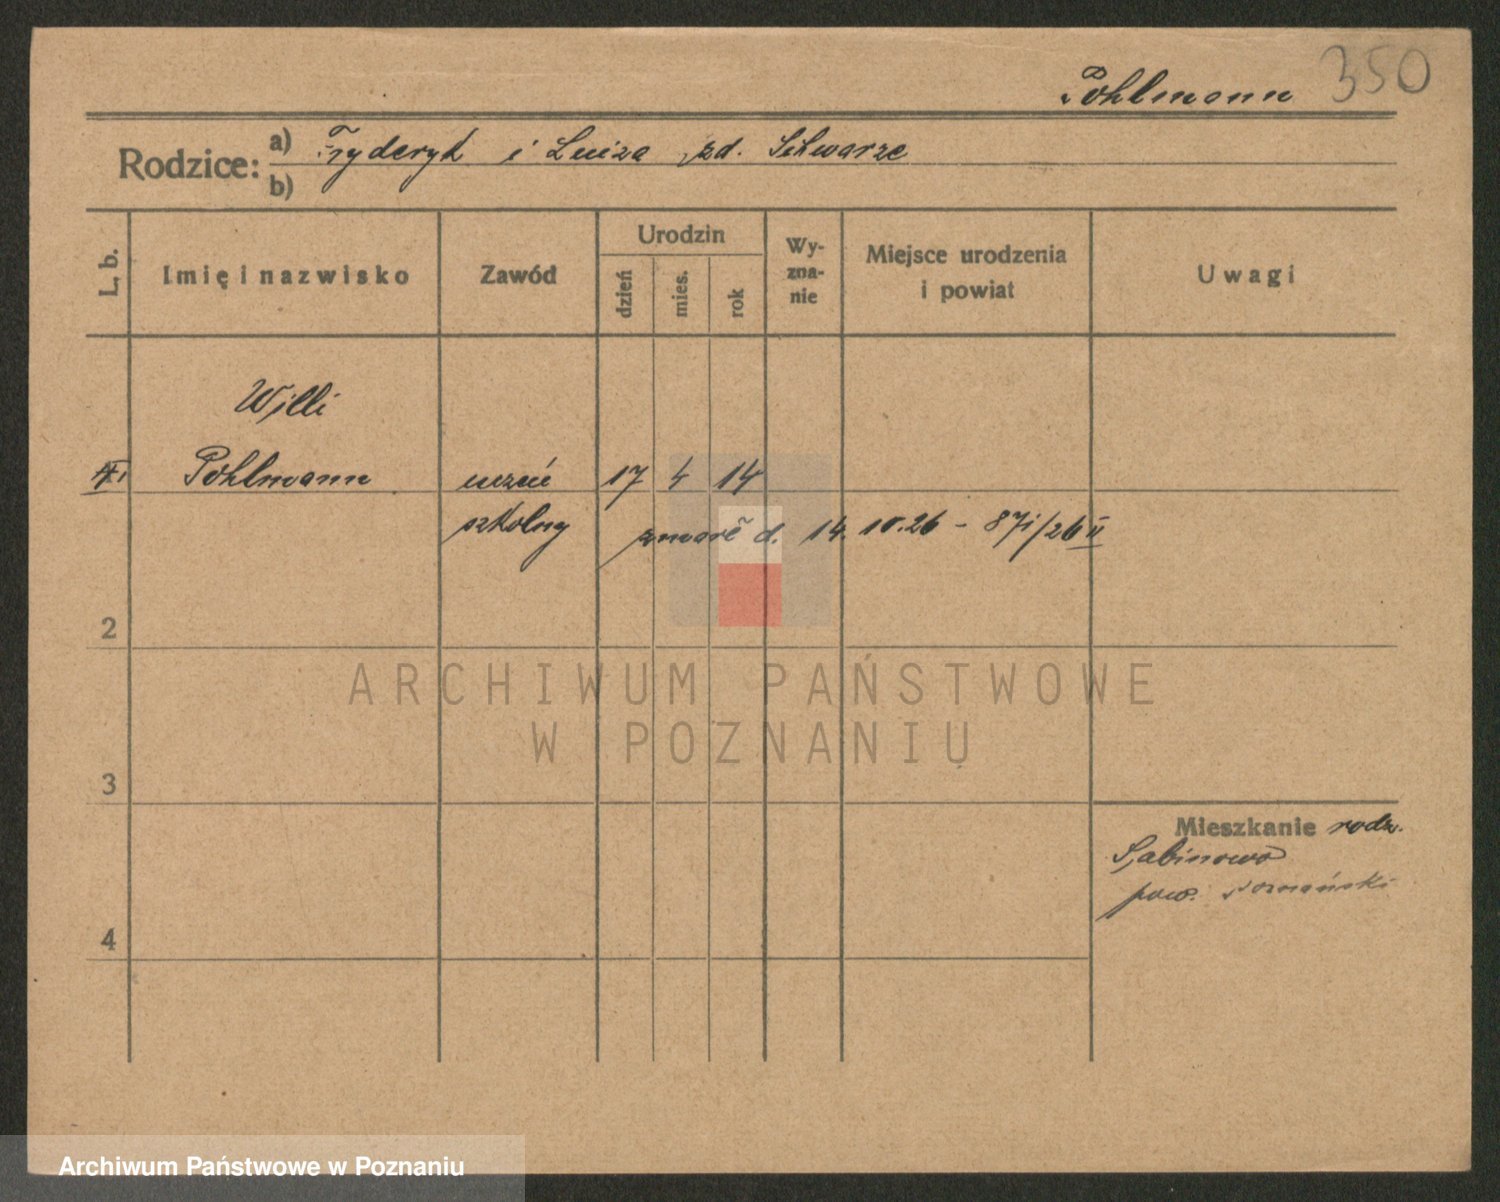 Pohlmann 350
Rodzice: a) Fryderyk i Luiza zd. Schwarze
b)
L. b.
Imię i nazwisko
Zawód
Urodzin
dzień
mies.
rok
Wy-
zna-
nie
Miejsce urodzenia
i powiat
Uwagi
Willi
Pohlmann uczeń 17 4 14
szkolny zmarł d. 14. 10. 26 - 87i/26 II
2
3
4
Mieszkanie rodz.
Sabinowo
pow. Poznański
ARCHIWUM PAŃSTWOWE
W POZNANIU
Archiwum Państwowe w Poznaniu